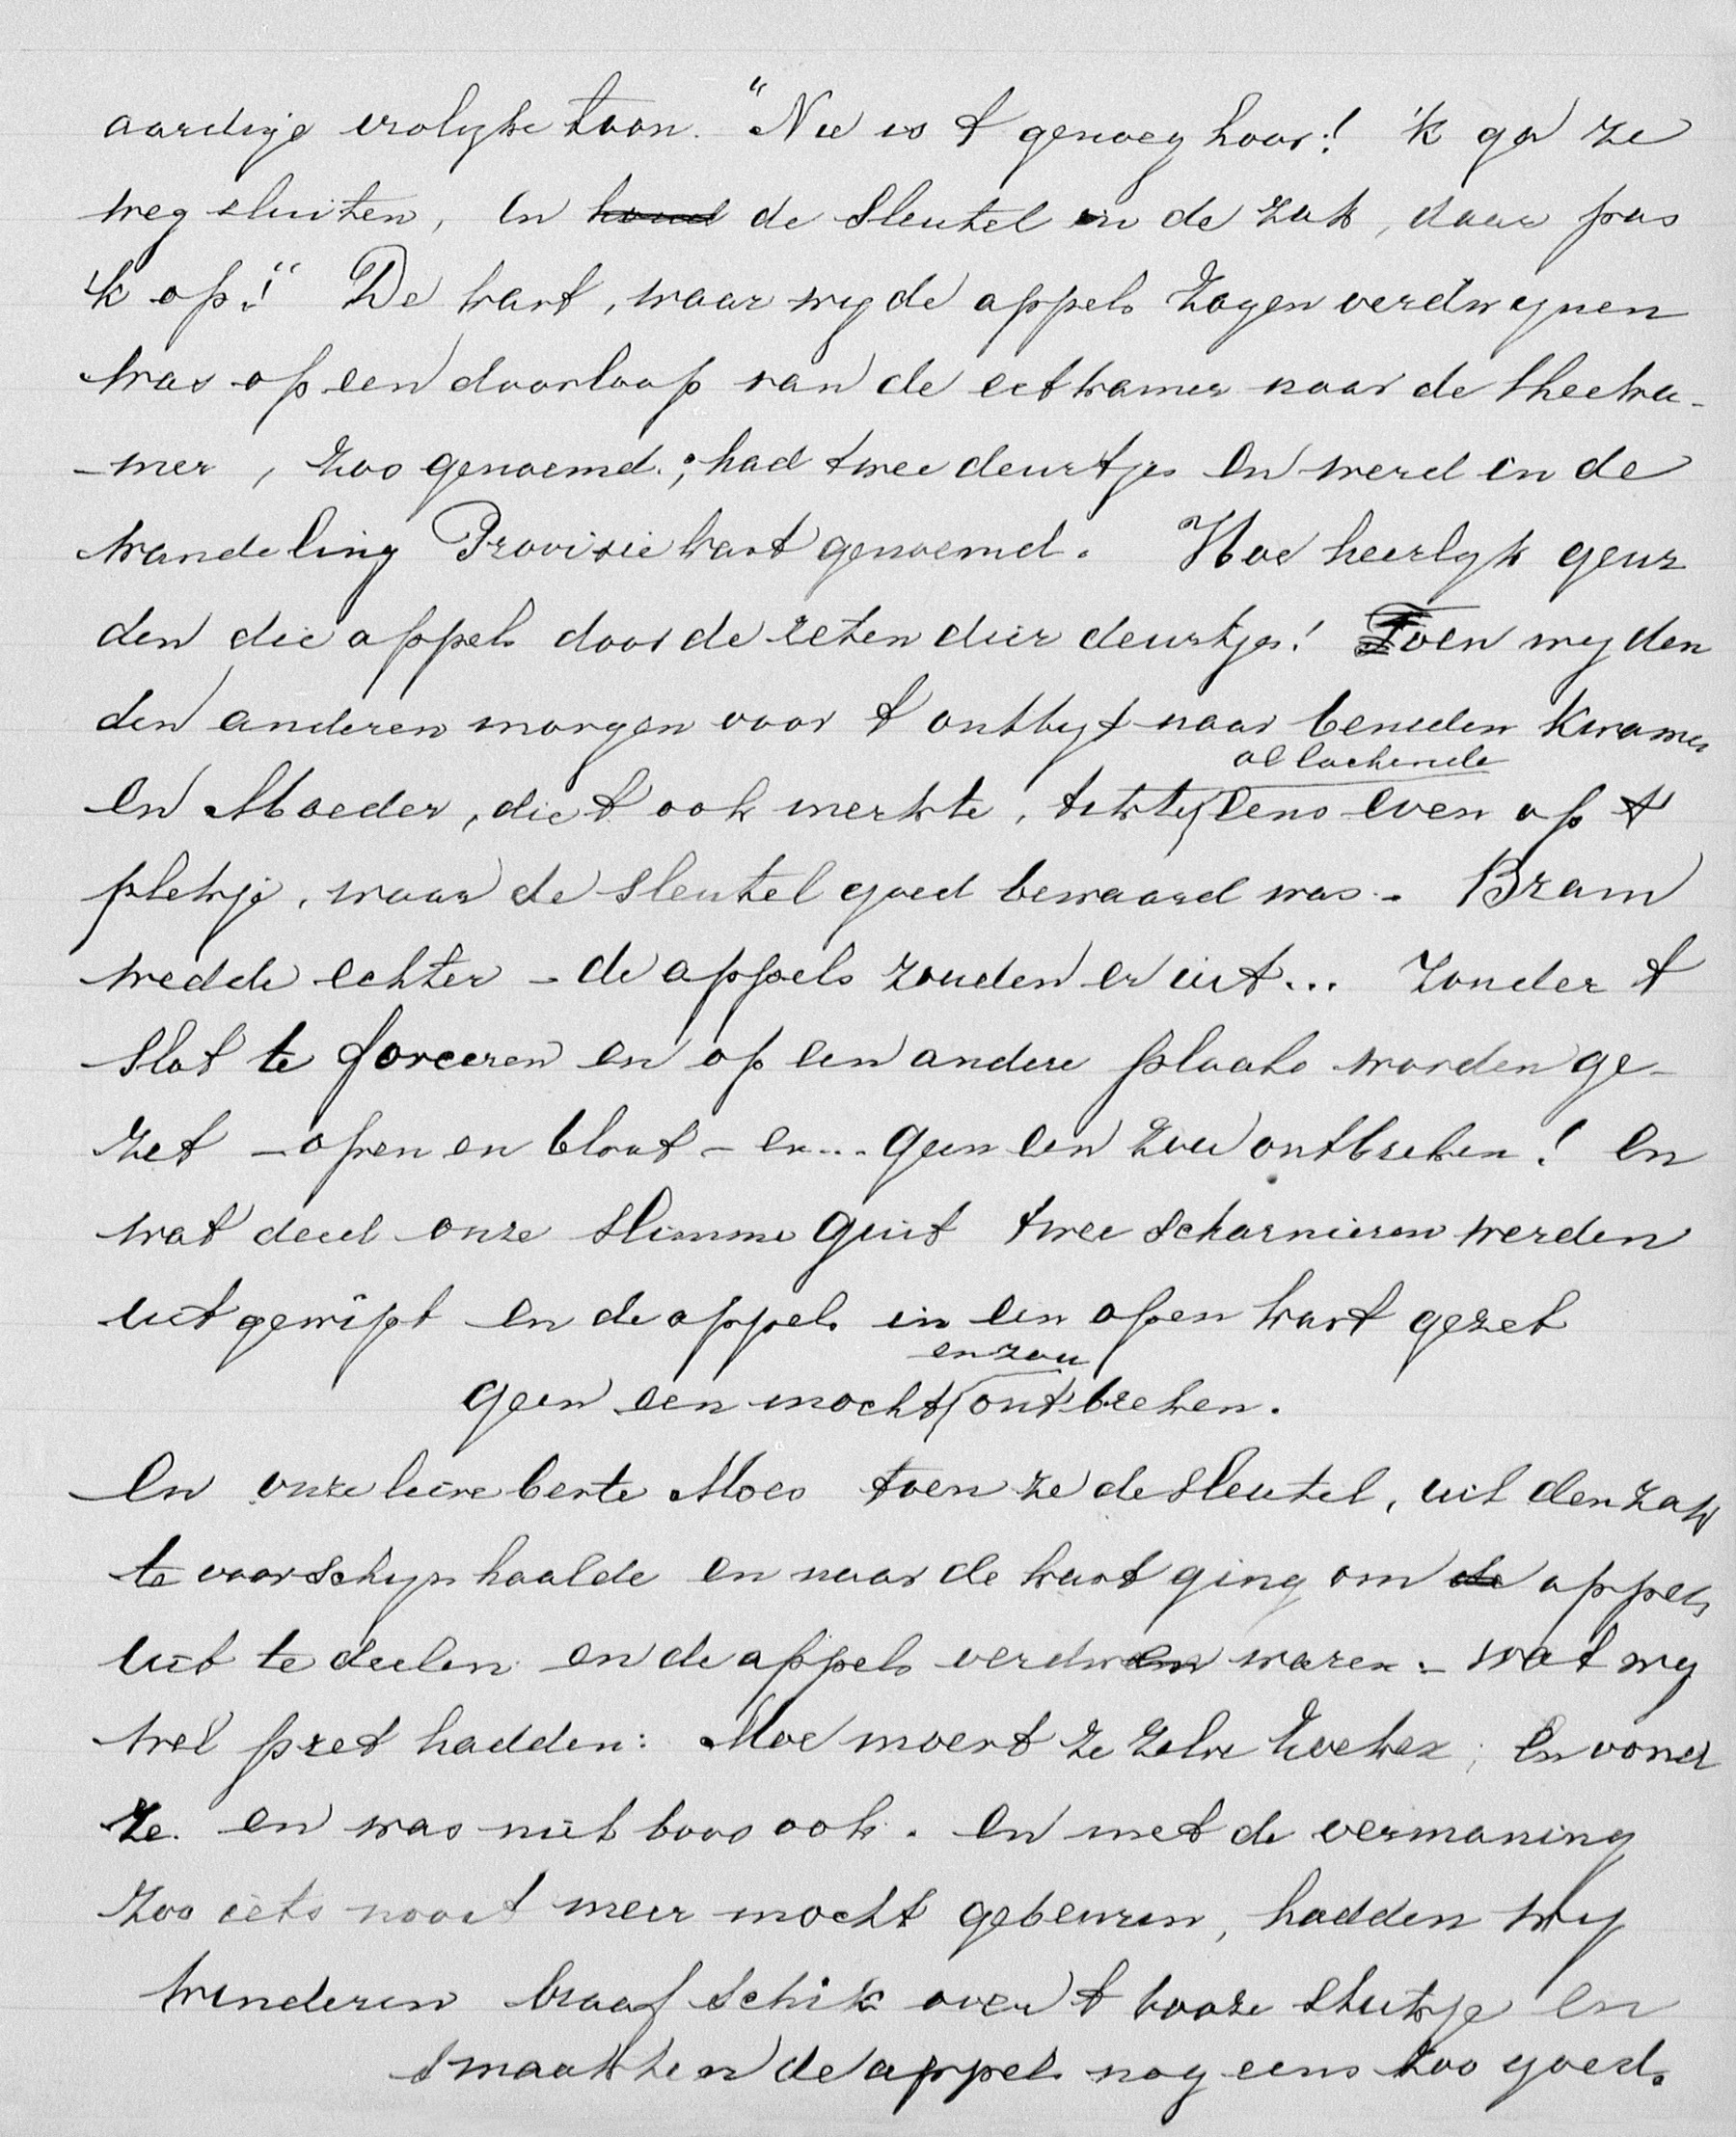 aardige vrolyke toon. "Nu is 't genoeg hoor! 'k ga ze
weg sluiten, en houd de sleutel in de zak, daar pas
'k op!" De kast, waar wy de appels zagen verdwynen
was op een doorloop van de eetkamer naar de theeka-
-mer, zoo genoemd; had twee deurtjes en werd in de
wandeling Provisiekast genoemd. Hoe heerlyk geur
den die appels door de reten dier deurtjes! Toen wy den
den anderen morgen voor 't ontbyt naar beneden kwamen
al lachende
en Moeder, die 't ook merkte, tikte eens even op 't
plekje, waar de sleutel goed bewaard was. - Bram
wedde echter - de appels zouden er uit... zonder 't
slot te forceeren en op een andere plaats worden ge-
zet - open en bloot - en... geen een zou ontbreken! En
wat deed onze slimme guit twee scharnieren werden
uitgewipt en de appels in een open kast gezet
en zou
geen een mocht ontbreken.
En onze lieve beste Moes toen ze de sleutel, uit den zak
te voorschyn haalde en naar de kast ging om de appels
uit te deelen en de appels verdwenen waren. - wat wy
wel pret hadden: Moe moest ze zelve zoeken; en vond
ze. en was niet boos ook. en met de vermaning
zoo iets nooit meer mocht gebeuren, hadden wy
kinderen braaf schik over 't booze stukje en
smaakten de appels nog eens zoo goed.